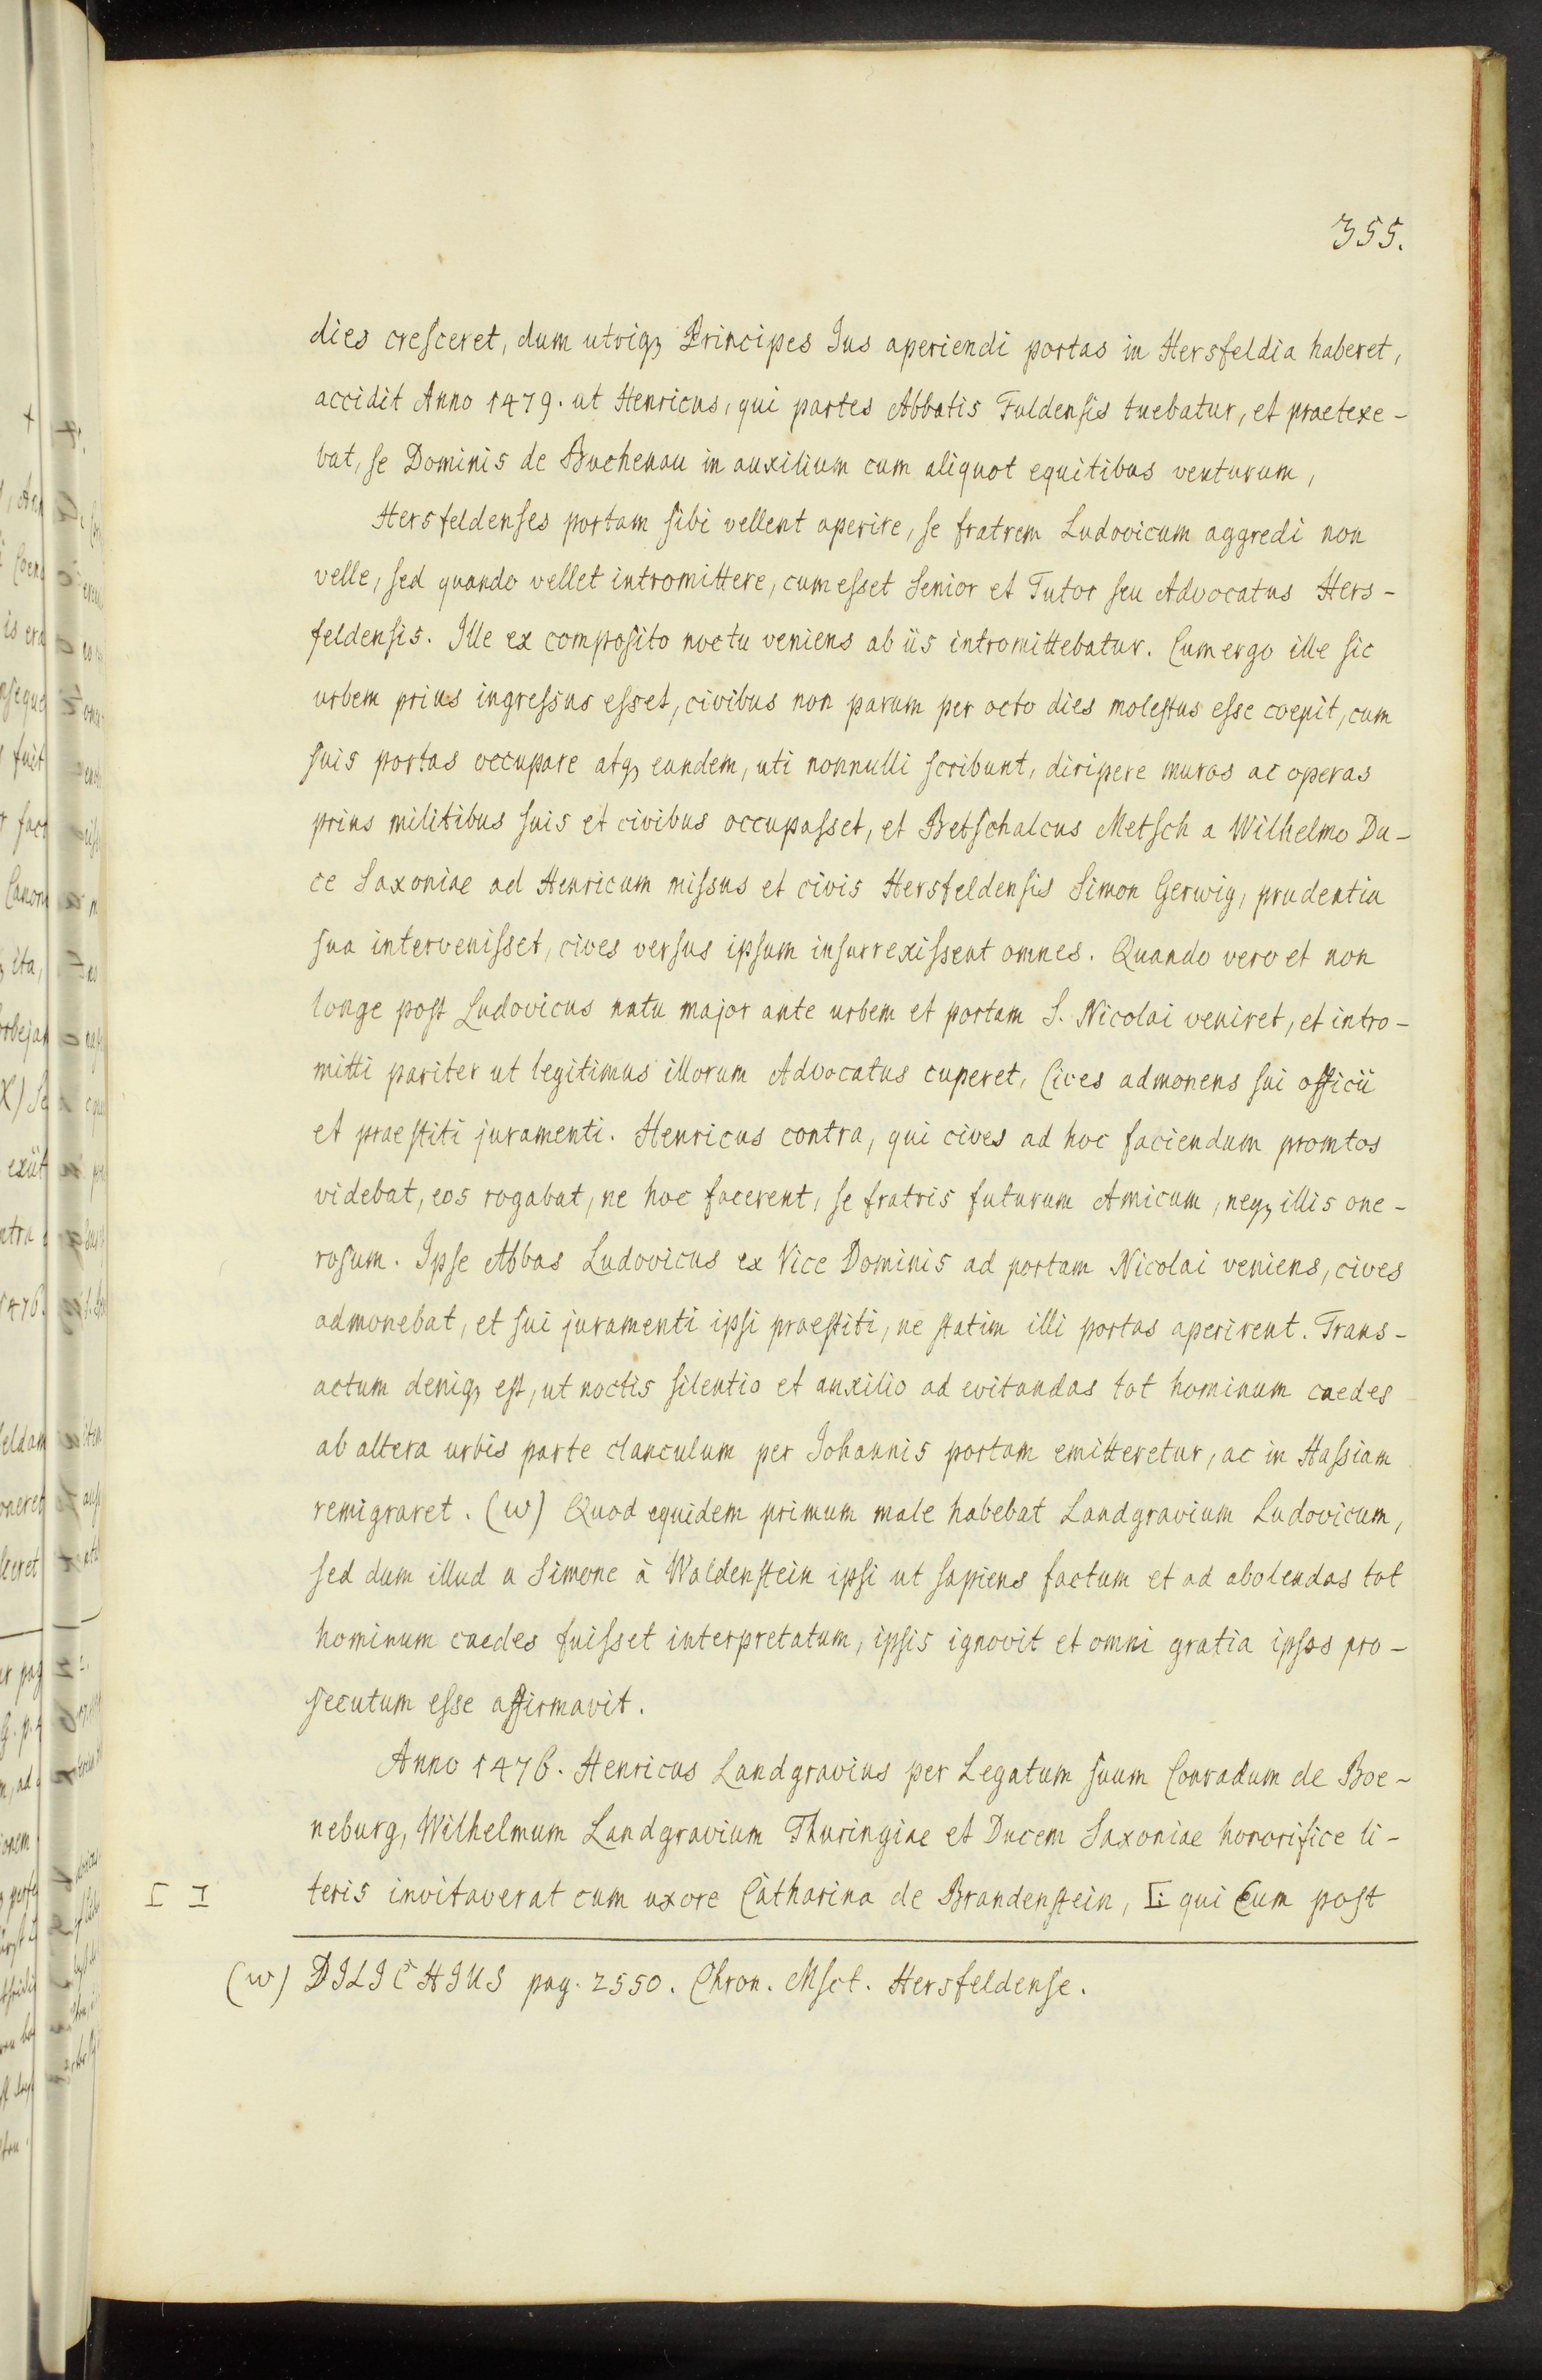 355.
dies creſceret, dum utriqꝫ Principes Jus aperiendi portas in Hersfeldia haberet,
accidit Anno 1479. ut Henricus, qui partes Abbatis Fuldenſis tuebatur, et praetexe-
bat, ſe Dominis de Buchenau in auxilium cum aliquot equitibus venturum,
Hersfeldenſes portam ſibi vellent aperire, ſe fratrem Ludovicum aggredi non
velle, ſed quando vellet intromittere, cum eſset Senior et Tutor ſeu Advocatus Hers-
feldenſis. Ille ex compoſito noctu veniens ab iis intromittebatur. Cum ergo ille ſic
urbem prius ingreſsus eſset, civibus non parum per octo dies moleſtus eſse coepit, cum
ſuis portas occupare atqꝫ eandem, uti nonnulli ſcribunt, diripere muros ac operas
prius militibus ſuis et civibus occupaſset, et Betſchalcus Metſch a Wilhelmo Du-
ce Saxoniae ad Henricum miſsus et civis Hersfeldenſis Simon Gerwig, prudentia
ſua interveniſset, cives versus ipſum inſurrexiſsent omnes. Quando vero et non
longe poſt Ludovicus natu major ante urbem et portam S. Nicolai veniret, et intro-
mitti pariter ut legitimus illorum Advocatus cuperet, Cives admonens ſui officii
et praeſtiti juramenti. Henricus contra, qui cives ad hoc faciendum promtos
videbat, eos rogabat, ne hoc facerent, ſe fratris futurum Amicum, neqꝫ illis one-
roſum. Ipſe Abbas Ludovicus ex Vice Dominis ad portam Nicolai veniens, cives
admonebat, et ſui juramenti ipſi praeſtiti, ne ſtatim illi portas aperirent. Trans-
actum deniqꝫ eſt, ut noctis ſilentio et auxilio ad evitandas tot hominum caedes
ab altera urbis parte clanculum per Johannis portam emitteretur, ac in Haſsiam
remigraret. (w) Quod equidem primum male habebat Landgravium Ludovicum,
ſed dum illud a Simone à Waldenſtein ipſi ut ſapiens factum et ad abolendas tot
hominum caedes fuiſset interpretatum, ipſis ignovit et omni gratia ipſos pro-
ſecutum eſse affirmavit.
Anno 1476. Henricus Landgravius per Legatum ſuum Conradum de Boe-
neburg, Wilhelmum Landgravium Thuringiae et Ducem Saxoniae honorifice li-
teris invitaverat cum uxore Catharina de Brandenſtein, [: qui Cum poſt
(w) DILICHIUS pag. 2550. Chron. Mſct. Hersfeldenſe.